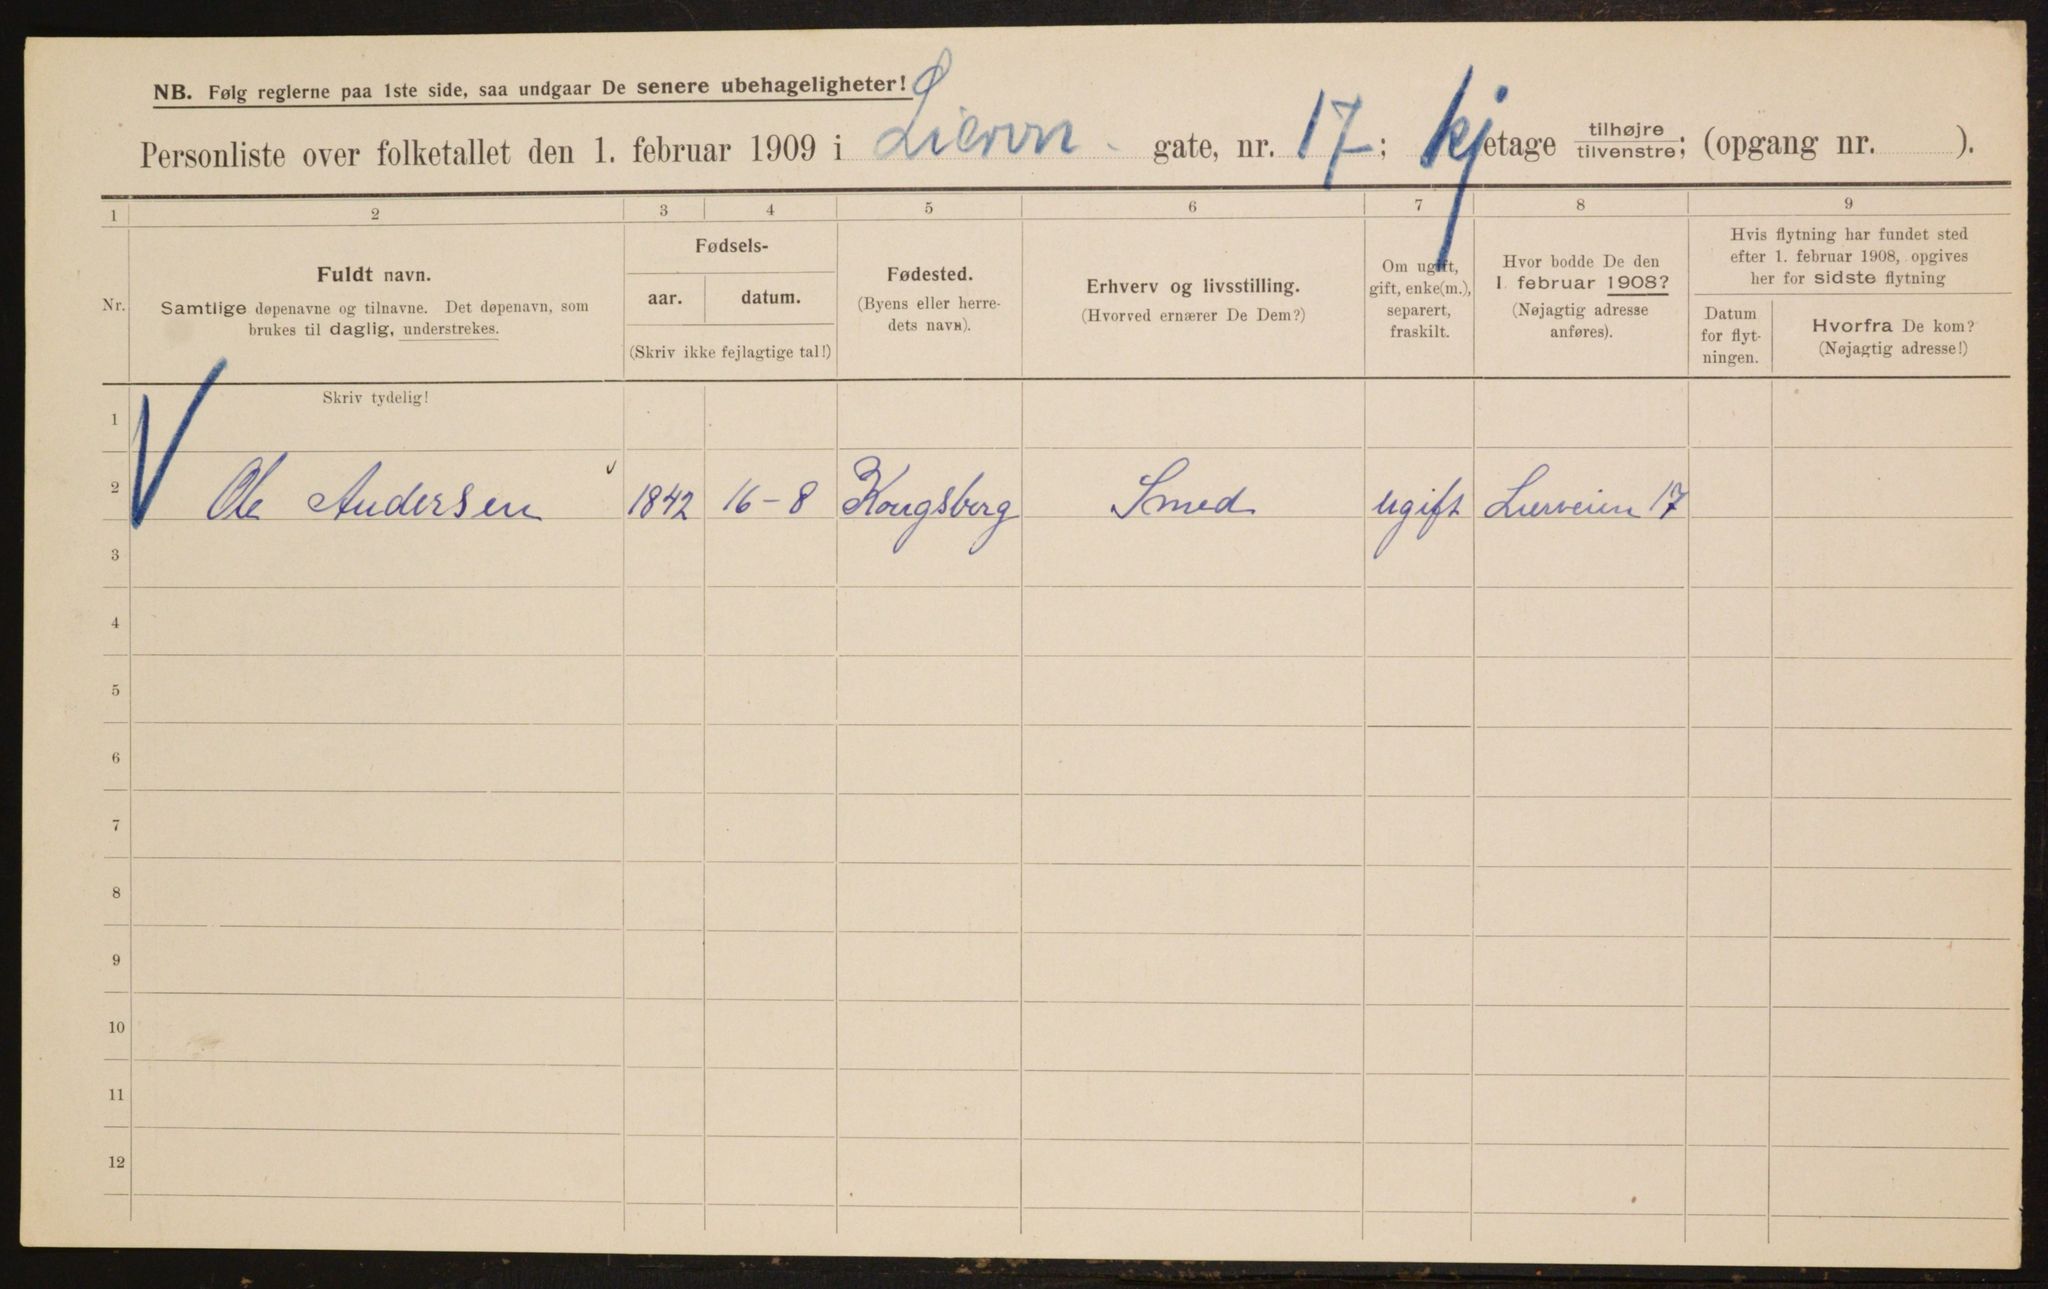 NB. Følg reglerne paa 1ste side, saa undgaar De senere ubehageligheter!
Personliste over folketallet den 1. februar 1909 i Liervn gate, nr. 17; kj etage tilhøjre/tilvenstre; (opgang nr. ).
1 2 3 4 5 6 7 8 9
Nr.
Fuldt navn.
Samtlige døpenavne og tilnavne. Det døpenavn, som
brukes til daglig, understrekes.
Fødsels-
aar. datum.
(Skriv ikke fejlagtige tal!)
Fødested.
(Byens eller herre-
dets navn).
Erhverv og livsstilling.
(Hvorved ernærer De Dem?)
Om ugift,
gift, enke(m.),
separert,
fraskilt.
Hvor bodde De den
1. februar 1908?
(Nøjagtig adresse
anføres).
Hvis flytning har fundet sted
efter 1. februar 1908, opgives
her for sidste flytning
Datum
for flyt-
ningen.
Hvorfra De kom?
(Nøjagtig adresse!)
Skriv tydelig!
1
2 Ole Andersen 1842 16-8 Kongsberg Smed ugift Lierveien 17
3
4
5
6
7
8
9
10
11
12